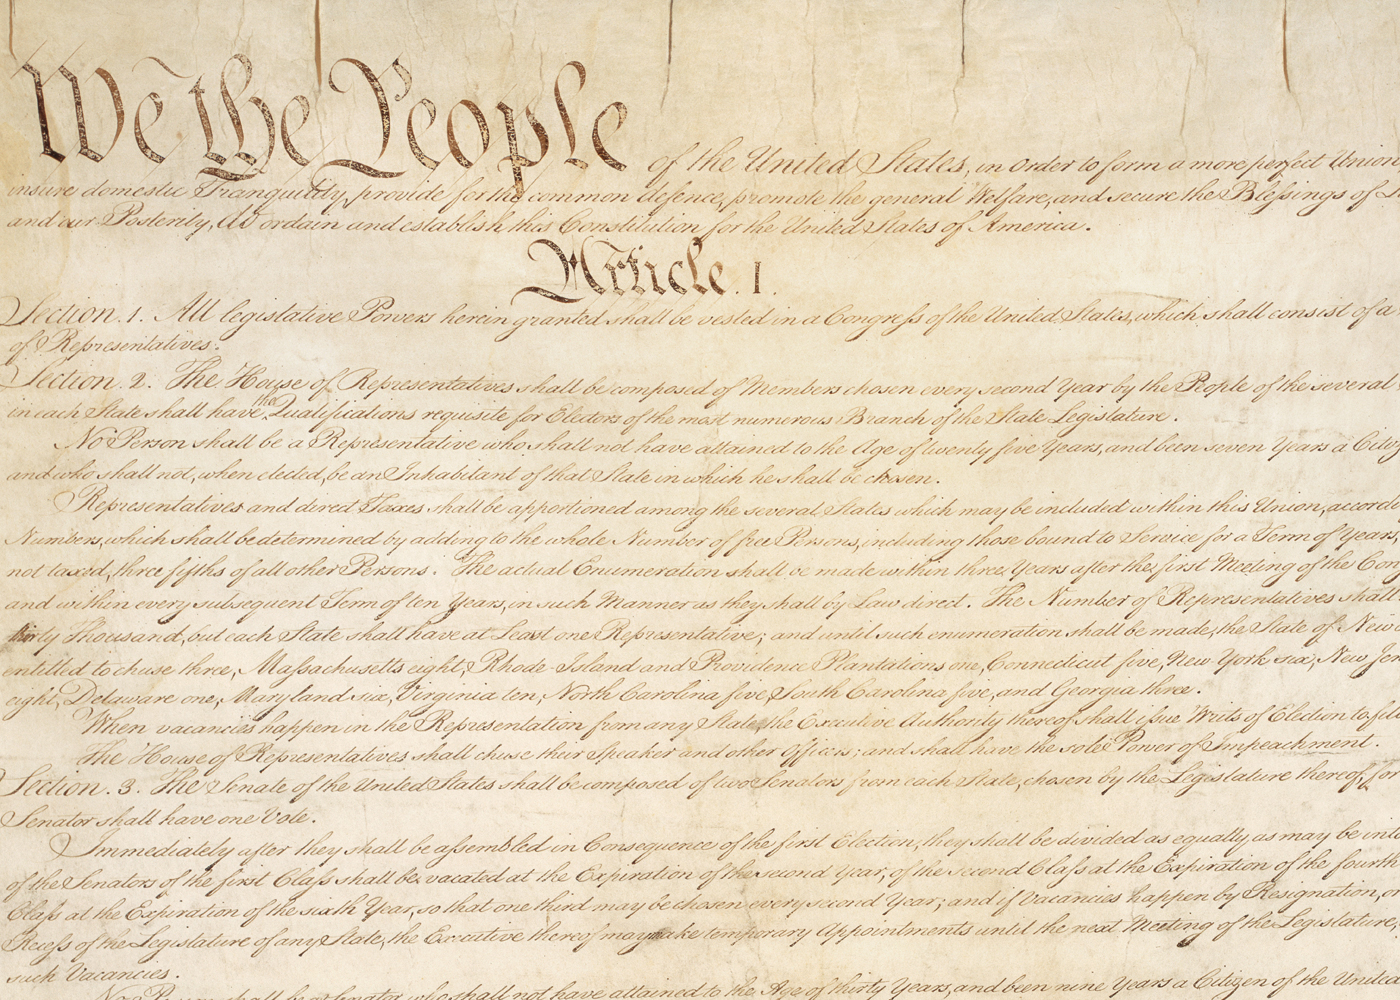 We the People of the United States, in Order to form a more perfect Union
insure domestic Tranquility, provide for the common defence, promote the general Welfare, and secure the Blessings of L
and our Posterity, do ordain and establish this Constitution for the United States of America.
Article. I.
Section. 1. All legislative Powers herein granted shall be vested in a Congress of the United States, which shall consist of a
of Representatives.
Section. 2. The House of Representatives shall be composed of Members chosen every second Year by the People of the several
in each State shall have the Qualifications requisite for Electors of the most numerous Branch of the State Legislature.
No Person shall be a Representative who shall not have attained to the Age of twenty five Years, and been seven Years a Citiz
and who shall not, when elected, be an Inhabitant of that State in which he shall be chosen.
Representatives and direct Taxes shall be apportioned among the several States which may be included within this Union, accordi
Numbers, which shall be determined by adding to the whole Number of free Persons, including those bound to Service for a Term of Years,
not taxed, three fifths of all other Persons. The actual Enumeration shall be made within three Years after the first Meeting of the Con
and within every subsequent Term of ten Years, in such Manner as they shall by Law direct. The Number of Representatives shall
thirty Thousand, but each State shall have at Least one Representative; and until such enumeration shall be made, the State of New
entitled to chuse three, Massachusetts eight, Rhode-Island and Providence Plantations one, Connecticut five, New-York six, New Jer
eight, Delaware one, Maryland six, Virginia ten, North Carolina five, South Carolina five, and Georgia three.
When vacancies happen in the Representation from any State, the Executive Authority thereof shall issue Writs of Election to fil
The House of Representatives shall chuse their Speaker and other Officers; and shall have the sole Power of Impeachment.
Section. 3. The Senate of the United States shall be composed of two Senators from each State, chosen by the Legislature thereof, for
Senator shall have one Vote.
Immediately after they shall be assembled in Consequence of the first Election, they shall be divided as equally as may be into
of the Senators of the first Class shall be vacated at the Expiration of the second Year, of the second Class at the Expiration of the fourth
Class at the Expiration of the sixth Year, so that one third may be chosen every second Year; and if Vacancies happen by Resignation, or
Recess of the Legislature of any State, the Executive thereof may make temporary Appointments until the next Meeting of the Legislature,
such Vacancies.
No Person shall be a Senator who shall not have attained to the Age of thirty Years, and been nine Years a Citizen of the United